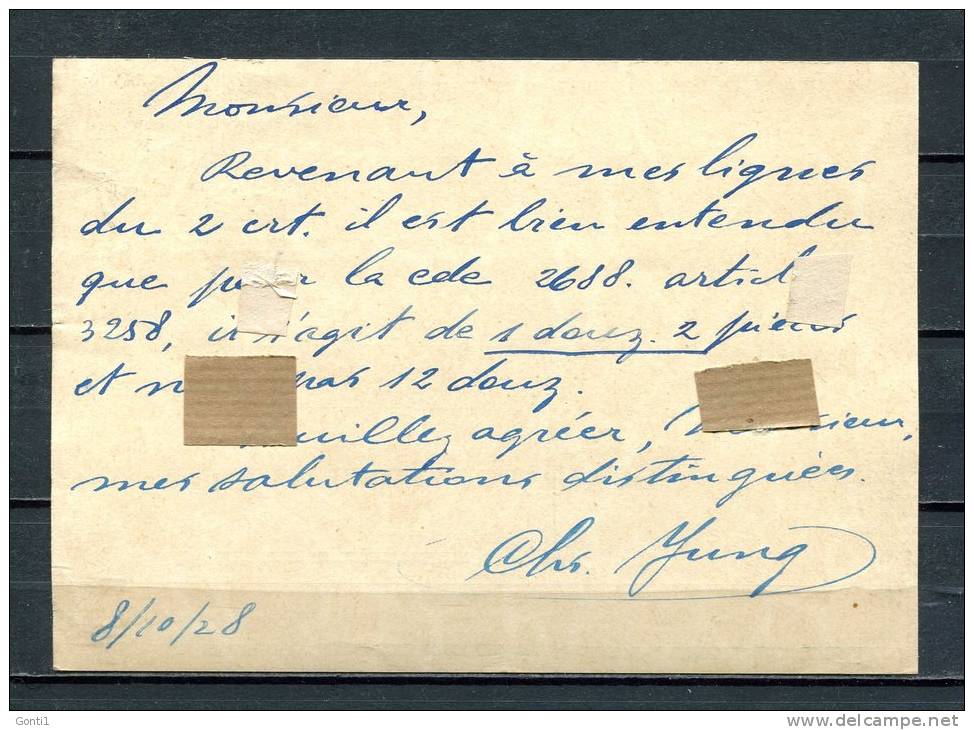 Monsieur,
Revenant à mes lignes
du 2 crt. il est bien entendu
que pour la cde 2688. articl
3258, il s'agit de 1 douz. 2 pièces
et n pas 12 douz.
uillez agréer, Monsieur,
mes salutations distinguées.
Chs. Jung
8/10/28
Gonti1
www.delcampe.net